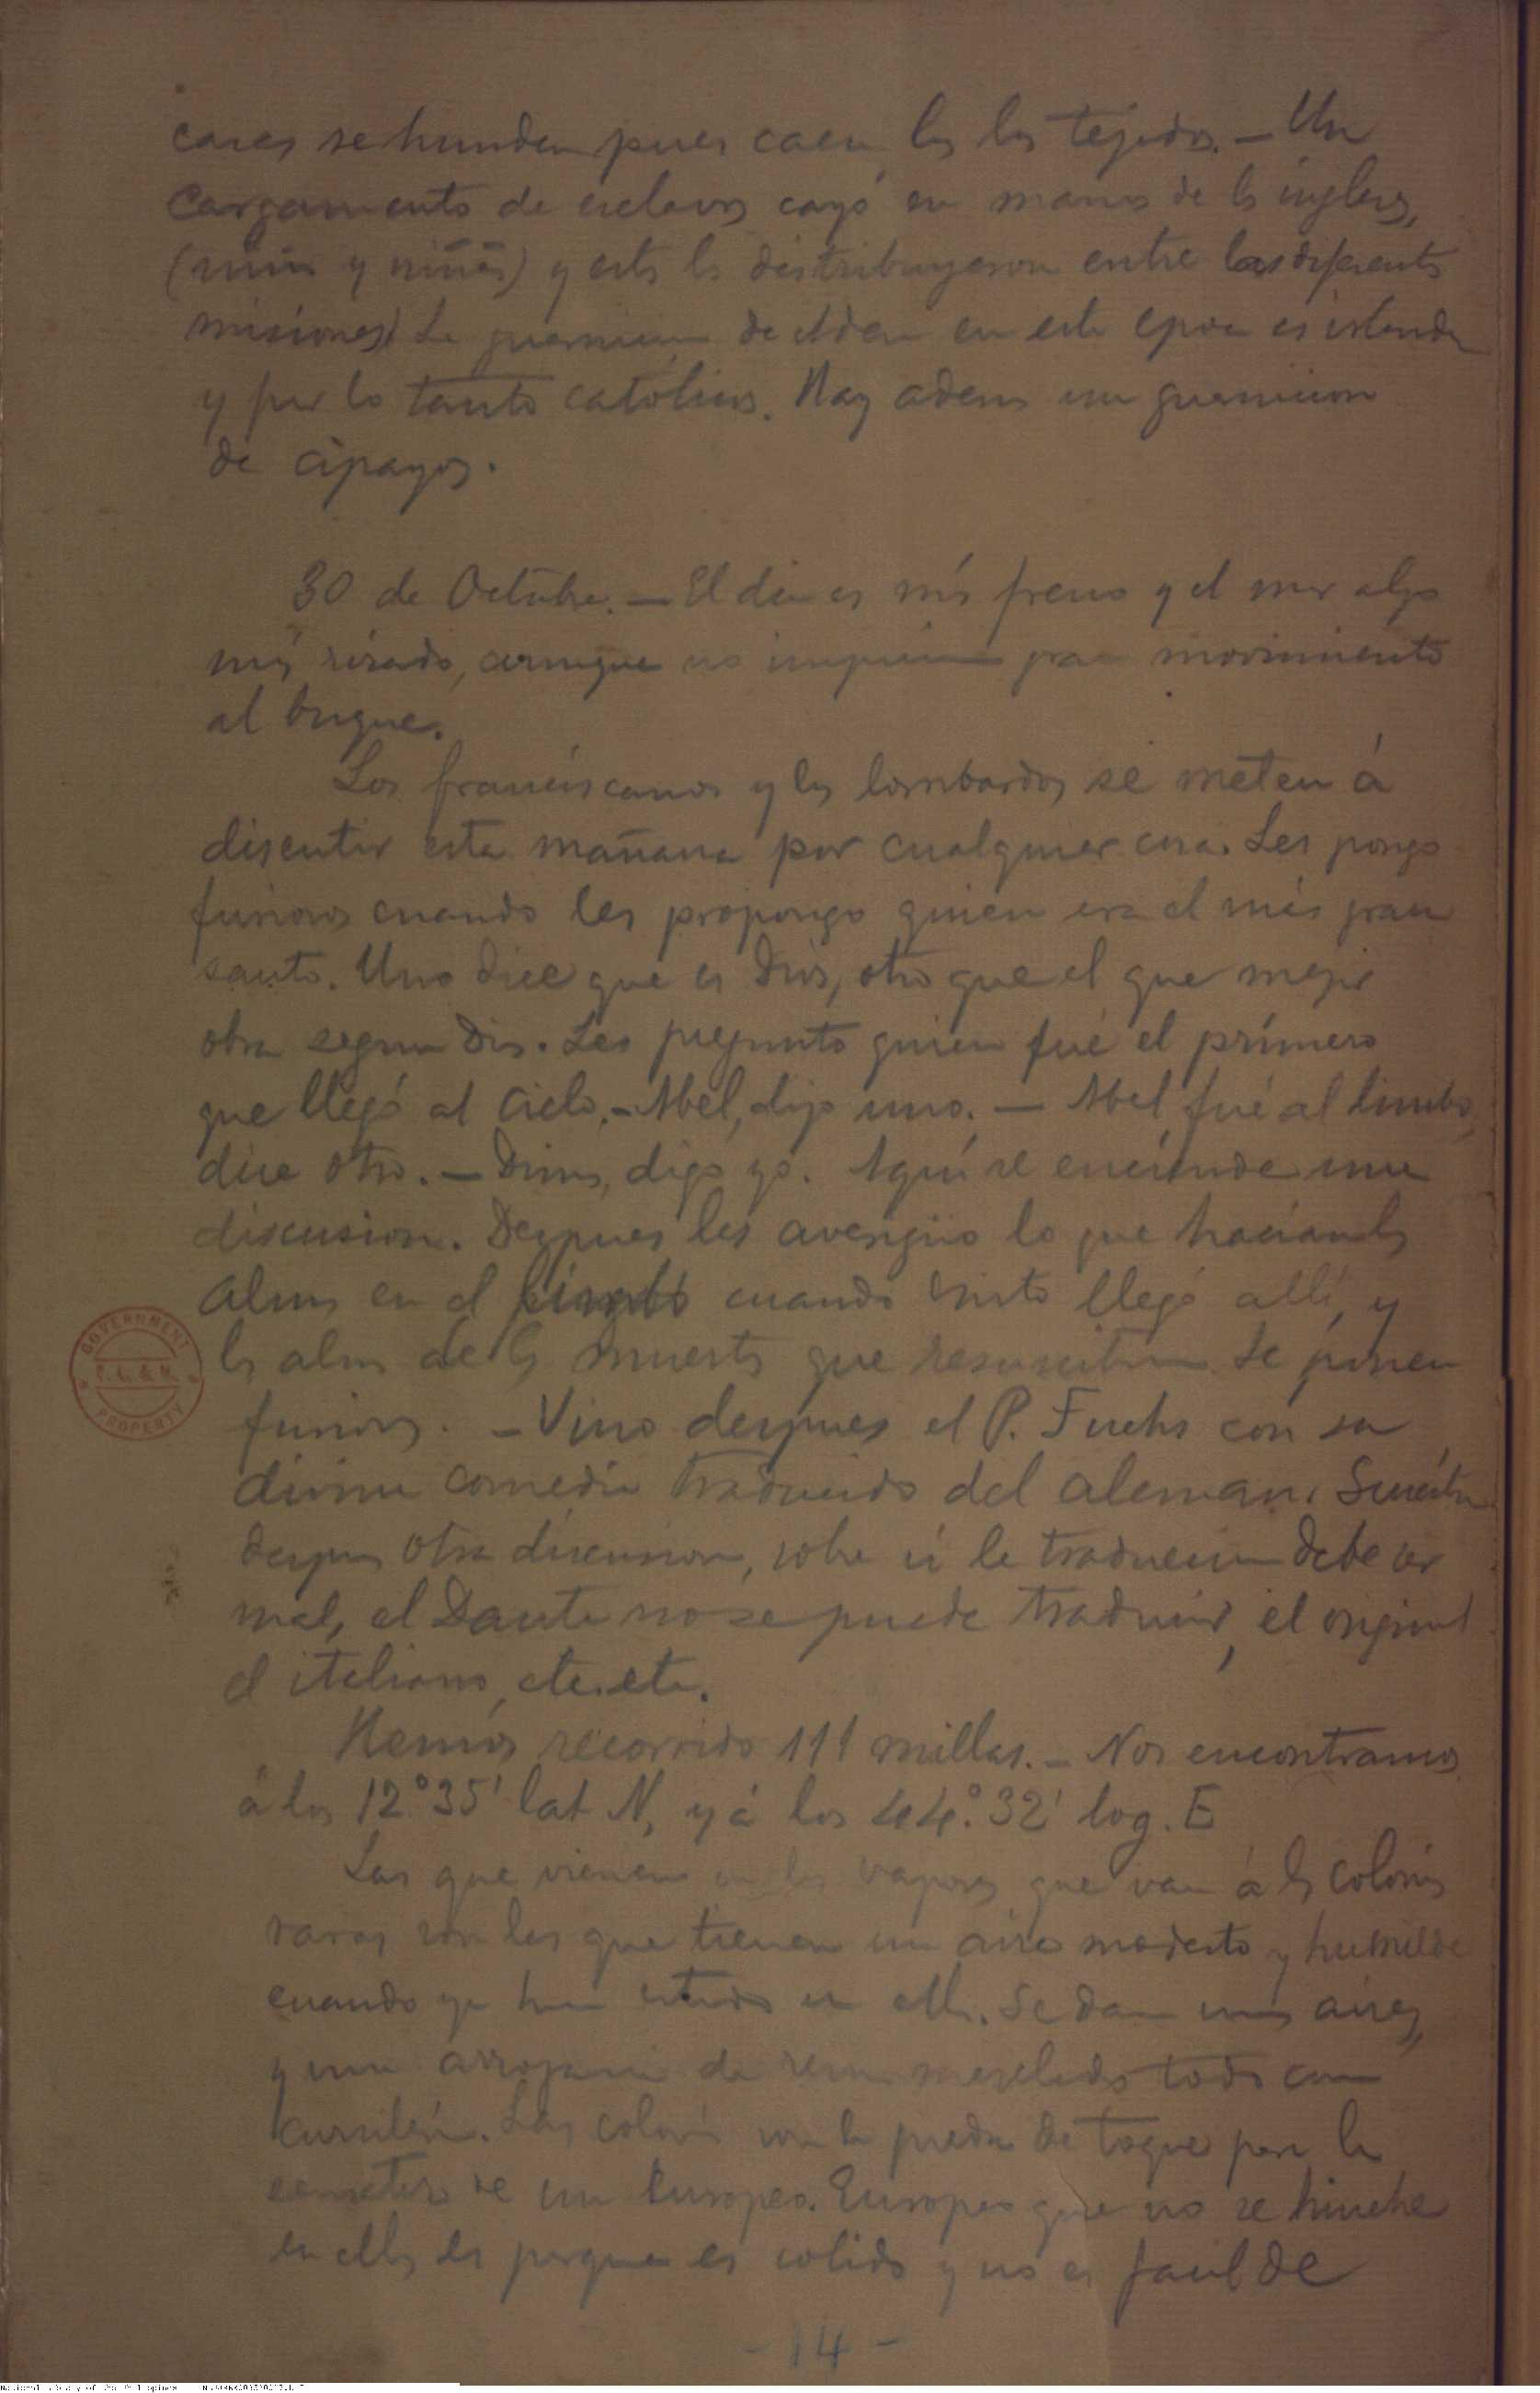 casas se hunden pues caen los los tejados. — Un
Cargamento de esclavos cayó en manos de los ingleses,
(niños y niñas) y estos los distribuyeron entre las diferentes
misiones. La guarnicion de Aden en esta epoca es irlandesa
y por lo tanto católicos. Hay ademas una guarnicion
de cipayos.
30 de Octubre. — El dia es más fresco y el mar algo
más rizado, aunque no imprime gran movimiento
al buque.
Los franciscanos y los lombardos se meten á
discutir esta mañana por cualquier cosa. Les pongo
furiosos cuando les propongo quien era el más gran
santo. Uno dice que es Dios, otro que el que mejor
obra segun Dios. Les pregunto quien fué el primero
que llegó al Cielo. — Abel, dijo uno. — Abel fué al limbo,
dice otro. — Dimas, digo yo. Aquí se enciende una
discusion. Despues les averigüo lo que hacían las
almas en el limbo cuando Cristo llegó allí, y
las almas de los muertos que resuscitaron. Se ponen
furiosos. — Vino despues el P. Fuchs con su
divina comedia traducida del aleman. Suscita
despues otra discusion, sobre si la traduccion debe ser
mal, el Dante no se puede traducir, el original
el italiano, etc. etc.
Hemos recorrido 111 millas. — Nos encontramos
á los 12°35' lat N, y á los 44°.32' log. E
Los que vienen en los vapores que van á las colonias
raros son los que tienen un aire modesto y humilde
cuando ya han estado en ellas. Se dan unos aires,
y una arrogancia de mezclado todo con
cursilería. Las colonias son la piedra de toque para la
de un Europeo. Europeo que no se hinche
en ellas es porque es solido y no es facil de
- 14 -
GOVERNMENT
P. L. & M.
PROPERTY
National Library of the Philippines